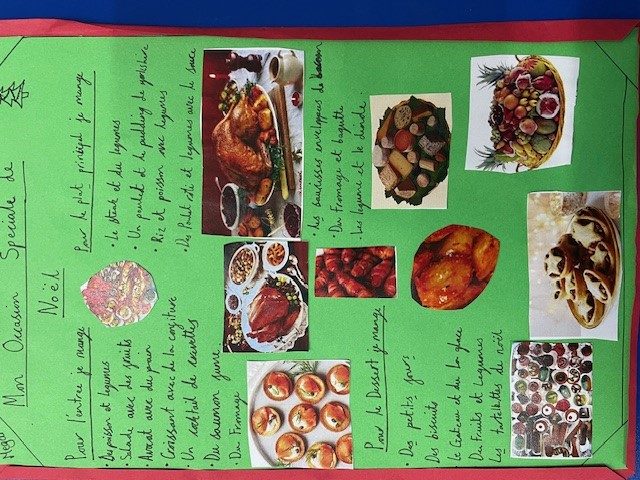 Mon Occasion Speciale de
Noël
Pour l'entrée je mange
• Du poisson et legumes
• Salade avec des fruits
• Avocat avec du pain
• Croissant avec de la confiture
• Un cocktail de crevettes
• Du saumon fumé
• Du Fromage
Pour le plat principal je mange
• Le steak et du legumes
• Un poulet et le pudding de yorkshire
• Riz et poisson avec legumes
• Un Poulet roti et legumes avec de sauce
• Les saucisses enveloppees de bacon
• Du Fromage et baguette
• Les legume et le dinde.
Pour le Dessert je mange
• Des petits fours
Des biscuits
Le Gateau et du la glace
Du Fruits et Legumes
Les tartelettes de noël